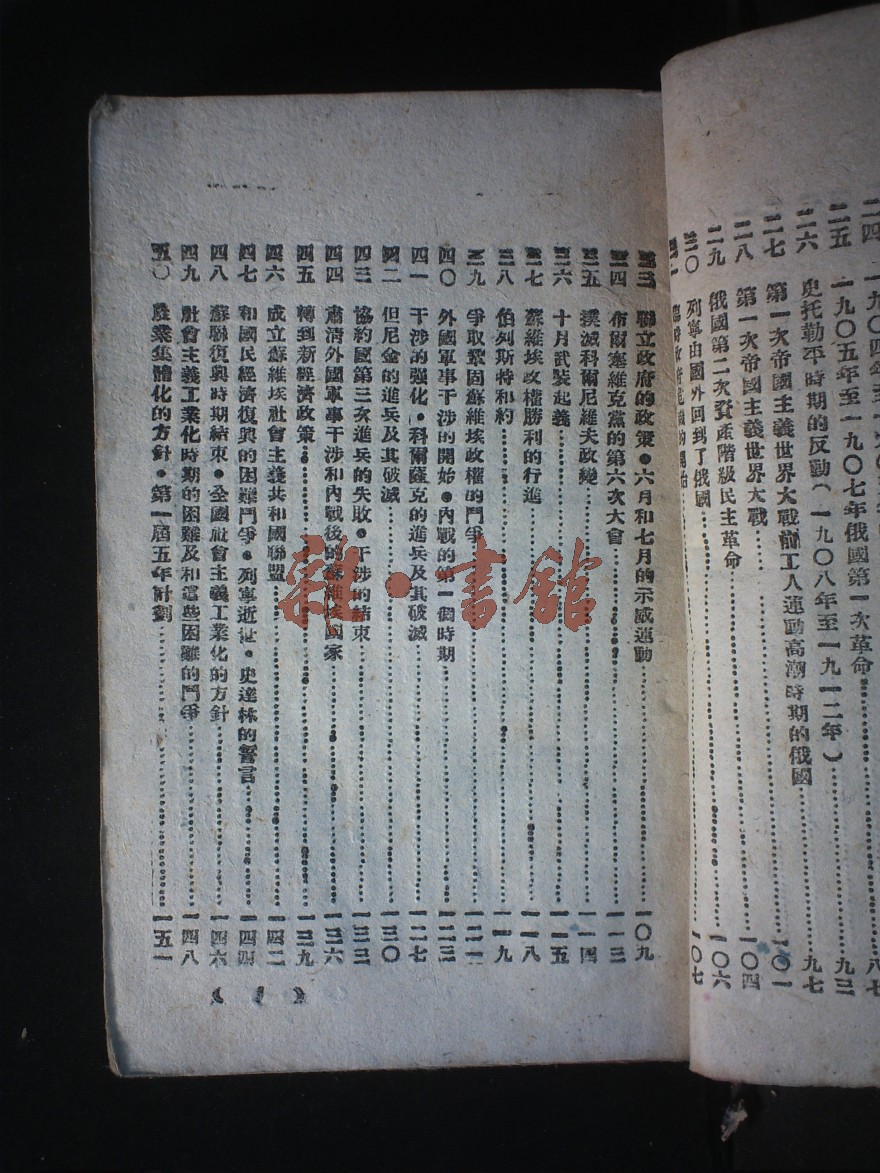 二四
八七
二五 一九〇五年至一九〇七年俄國第一次革命 九三
二六 史托勒平時期的反動(一九〇八年至一九一二年) 九七
二七 第一次帝國主義世界大戰前工人運動高漲時期的俄國 一〇一
二八 第一次帝國主義世界大戰 一〇四
二九 俄國第二次資產階級民主革命 一〇六
三〇 列寧由國外回到了俄國 一〇七
三三 聯立政府的政策·六月和七月的示威運動 一〇九
三四 布爾塞維克黨的第六次大會 一一三
三五 撲滅科爾尼羅夫政變 一一四
三六 十月武裝起義 一一五
三七 蘇維埃政權勝利的行進 一一八
三八 伯列斯特和約 一一九
三九 爭取鞏固蘇維埃政權的鬥爭 一二一
四〇 外國軍事干涉的開始·內戰的第一個時期 一二三
四一 干涉的强化·科爾薩克的進兵及其破滅 一二七
四二 但尼金的進兵及其破滅 一三〇
四三 協約國第三次進兵的失敗·干涉的結束 一三三
四四 肅清外國軍事干涉和內戰後的蘇維埃國家 一三六
四五 轉到新經濟政策 一三九
四六 成立蘇維埃社會主義共和國聯盟 一四二
四七 和國民經濟復興的困難鬥爭·列寧逝世·史達林的誓言 一四四
四八 蘇聯復興時期結束·全國社會主義工業化的方針 一四六
四九 社會主義工業化時期的困難及和這些困難的鬥爭 一四八
五〇 農業集體化的方針·第一屆五年計劃 一五一
·書館